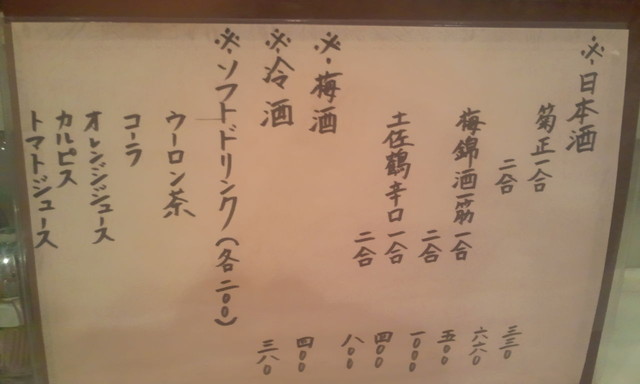 ※日本酒
菊正一合 三三〇
二合 六六〇
梅錦酒一筋一合 五〇〇
二合 一〇〇〇
土佐鶴辛口一合 四〇〇
二合 八〇〇
※梅酒 四〇〇
※冷酒 三八〇
※ソフトドリンク(各二〇〇)
ウーロン茶
コーラ
オレンジジュース
カルピス
トマトジュース